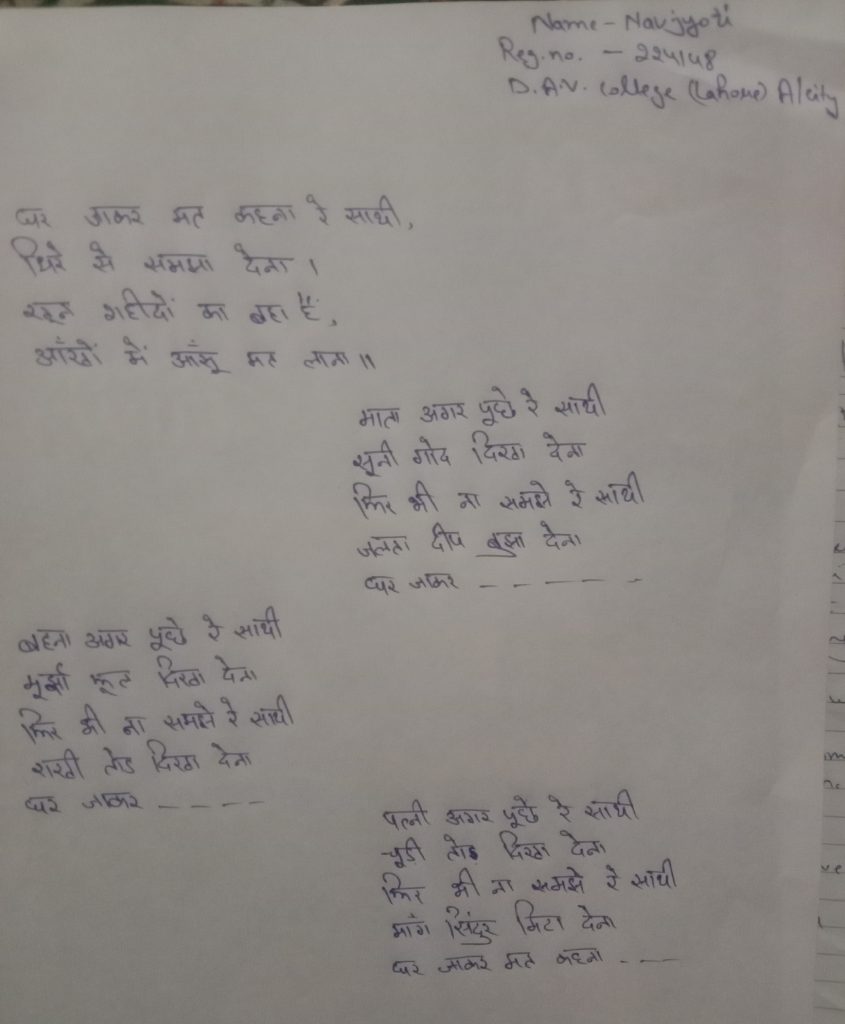 Name - Navjyoti
Reg. no. - 224148
D.A.V. College (Lahore) A/city
घर जाकर मत कहना रे साथी,
धिरे से समझा देना ।
खून शहीदों का बहा हैं,
आँखों में आँसू मत लाना ॥
माता अगर पूछे रे साथी
सूनी गोद दिखा देना
फिर भी ना समझे रे साथी
जलता दीप बुझा देना
घर जाकर ------
बहना अगर पूछे रे साथी
मूर्झा फूल दिखा देना
फिर भी ना समझे रे साथी
राखी तोड दिखा देना
घर जाकर -----
पत्नी अगर पूछे रे साथी
चूडी तोड दिखा देना
फिर भी ना समझे रे साथी
माँग सिंदुर मिटा देना
घर जाकर मत कहना ---